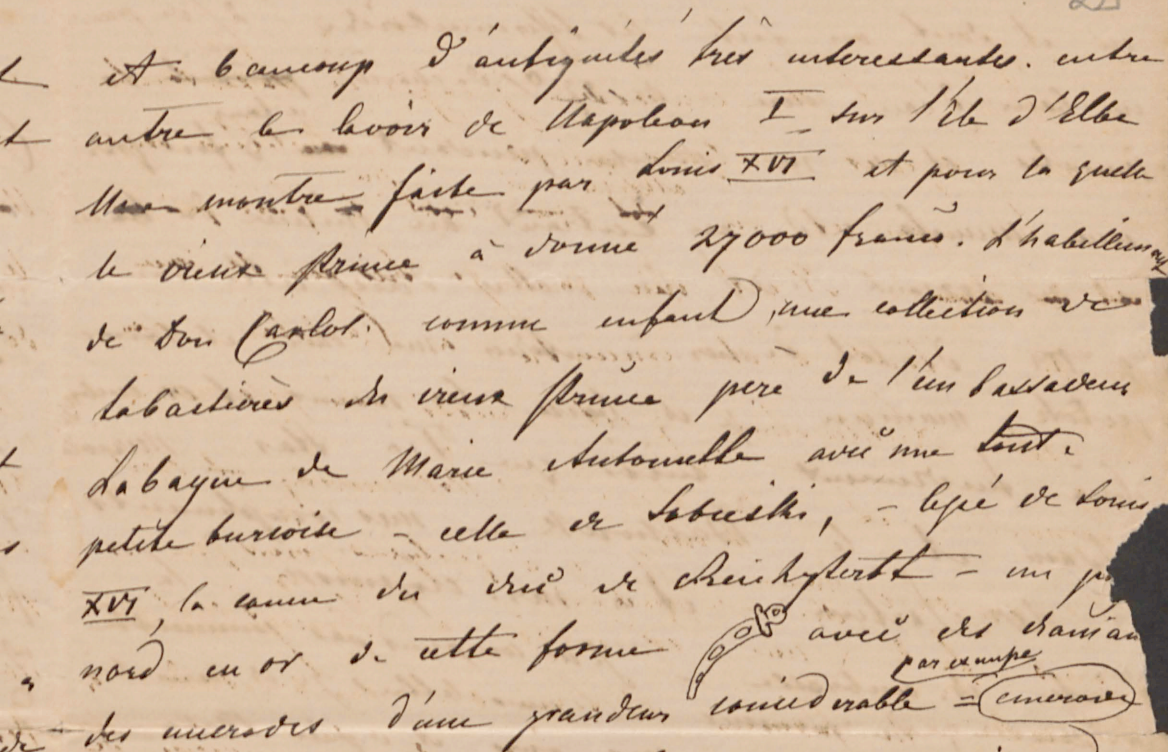 et beaucoup d'antiquités très interessantes. entre
autre le lavoir de Napoleon I sur l'Ile d'Elbe
Une montre faite par Louis XVI et pour la quelle
le vieux Prince à donné 27000 francs. L'habillement
de Don Carlos. comme enfant, une collection de
tabatières du vieux Prince pere de l'embassadeur
La bague de Marie Antoinette avec une toute
petite turcoise – celle de Sobieski, – l'epé de Louis
XVI, la canne du duc de Reichstadt – un
nard en or de cette forme avec des diaman
par exempe
des emerodes d'une grandeur considerable = emeraude